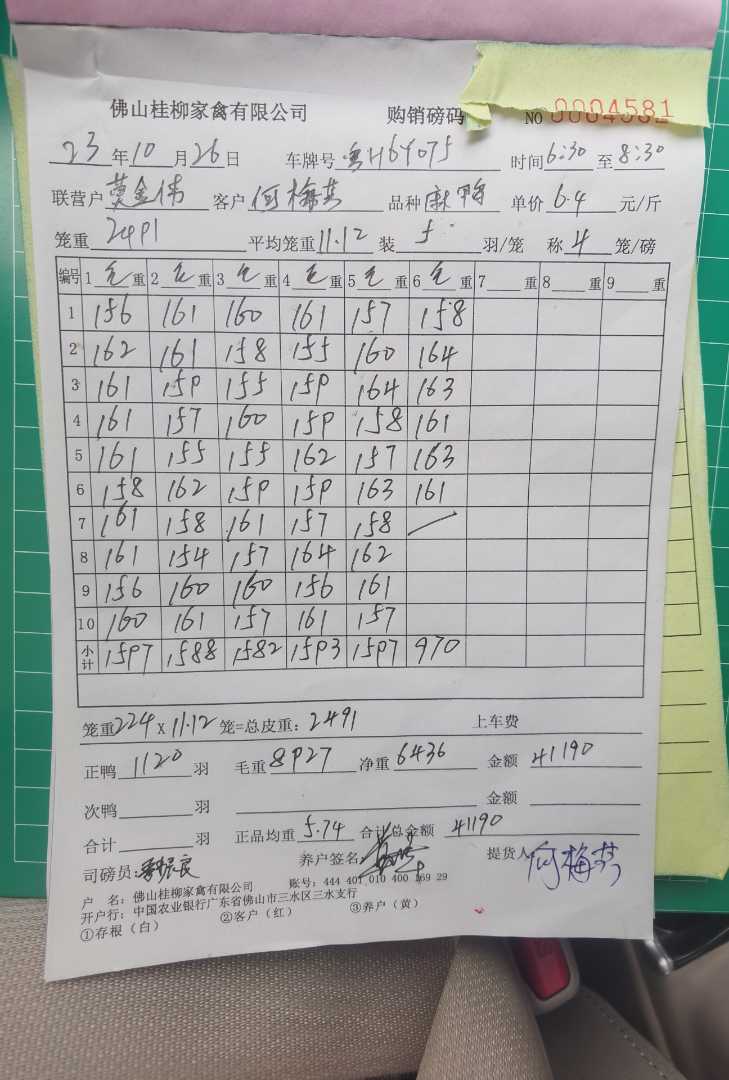 佛山桂柳家禽有限公司 购销磅码 NO 0004581
23年10月26日 车牌号粤H6Y075 时间6:30至8:30
联营户莫金伟 客户何梅芳 品种麻鸭 单价6.4元/斤
笼重2491 平均笼重11.12 装5羽/笼 称4笼/磅
编号 1毛重 2毛重 3毛重 4毛重 5毛重 6毛重 7重 8重 9重
1 156 161 160 161 157 158
2 162 161 158 155 160 164
3 161 159 155 159 164 163
4 161 157 160 159 158 161
5 161 155 155 162 157 163
6 158 162 159 159 163 161
7 161 158 161 157 158
8 161 154 157 164 162
9 156 160 160 156 161
10 160 161 157 161 157
小计 1597 1588 1582 1593 1597 970
笼重224×11.12笼=总皮重:2491 上车费
正鸭1120羽 毛重8927 净重6436 金额41190
次鸭 羽 金额
合计 羽 正品均重5.74 合计总金额41190
司磅员: 养户签名 提货人
户 名:佛山桂柳家禽有限公司 账号:444 401 010 400 169 29
开户行:中国农业银行广东省佛山市三水区三水支行
①存根(白) ②客户(红) ③养户(黄)